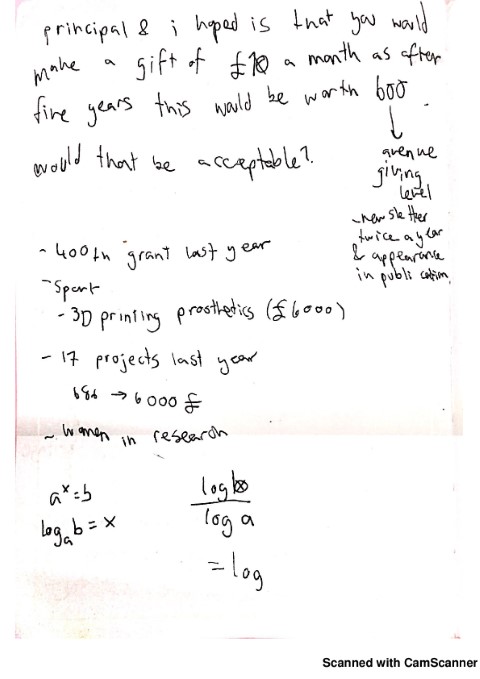 principal & i hoped is that you would
make a gift of £10 a month as after
five years this would be worth 600
would that be acceptable?
avenue
giving
level
-newsletter
twice a year
& appearance
in publication
- 400th grant last year
- Spent
- 3D printing prosthetics (£6000)
- 17 projects last year
686 → 6000 £
- Women in research
aˣ=b
logₐb = x
log b
log a
= log
Scanned with CamScanner